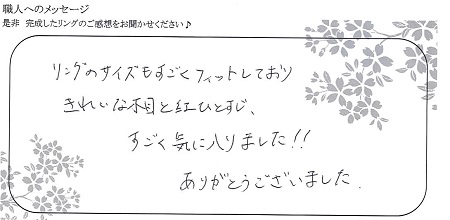 職人へのメッセージ
是非 完成したリングのご感想をお聞かせください♪
リングのサイズもすごくフィットしており
きれいな木目と紅ひとすじ、
すごく気に入りました!!
ありがとうございました.